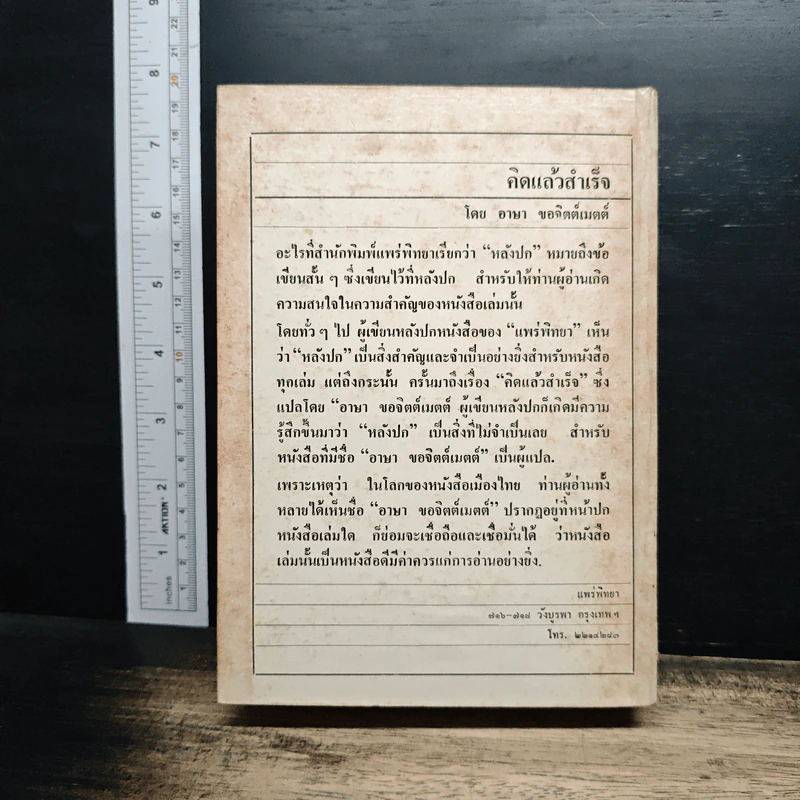 คิดแล้วสำเร็จ
โดย อาษา ขอจิตต์เมตต์
อะไรที่สำนักพิมพ์แพร่พิทยาเรียกว่า “หลังปก” หมายถึงข้อ
เขียนสั้น ๆ ซึ่งเขียนไว้ที่หลังปก สำหรับให้ท่านผู้อ่านเกิด
ความสนใจในความสำคัญของหนังสือเล่มนั้น
โดยทั่ว ๆ ไป ผู้เขียนหลังปกหนังสือของ “แพร่พิทยา” เห็น
ว่า “หลังปก” เป็นสิ่งสำคัญและจำเป็นอย่างยิ่งสำหรับหนังสือ
ทุกเล่ม แต่ถึงกระนั้น ครั้นมาถึงเรื่อง “คิดแล้วสำเร็จ” ซึ่ง
แปลโดย “อาษา ขอจิตต์เมตต์ ผู้เขียนหลังปกก็เกิดมีความ
รู้สึกขึ้นมาว่า “หลังปก” เป็นสิ่งที่ไม่จำเป็นเลย สำหรับ
หนังสือที่มีชื่อ “อาษา ขอจิตต์เมตต์” เป็นผู้แปล.
เพราะเหตุว่า ในโลกของหนังสือเมืองไทย ท่านผู้อ่านทั้ง
หลายได้เห็นชื่อ “อาษา ขอจิตต์เมตต์” ปรากฏอยู่ที่หน้าปก
หนังสือเล่มใด ก็ย่อมจะเชื่อถือและเชื่อมั่นได้ ว่าหนังสือ
เล่มนั้นเป็นหนังสือดีมีค่าควรแก่การอ่านอย่างยิ่ง.
แพร่พิทยา
๗๑๖-๗๑๘ วังบูรพา กรุงเทพฯ
โทร. ๒๒๑๔๒๘๓
9
8
7
6
5
4
3
2
1
inches
AKTION
22
21
20
19
18
17
16
15
14
13
12
11
10
9
8
7
6
5
4
3
2
1